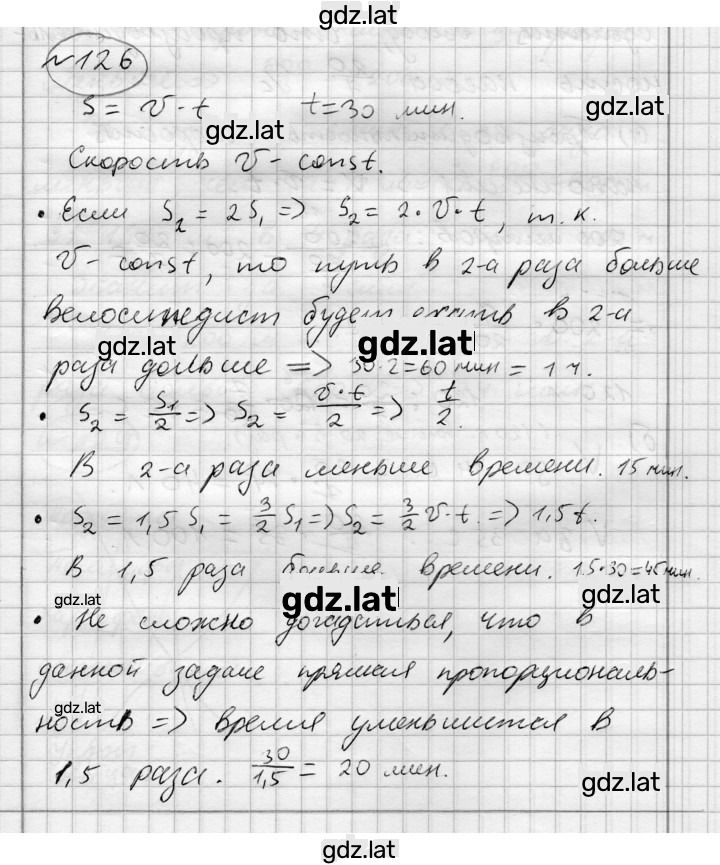 gdz.lat
№126
S = v · t t = 30 мин.
gdz.lat
Скорость v - const.
• Если S₂ = 2S₁ => S₂ = 2 · v · t, т.к.
v - const, то путь в 2-а раза больше
велосипедист будет ехать в 2-а
gdz.lat gdz.lat
раза дольше => 30·2=60 мин = 1 ч.
• S₂ = S₁/2 => S₂ = v·t/2 => t/2.
В 2-а раза меньше времени. 15 мин.
gdz.lat
• S₂ = 1,5 S₁ = 3/2 S₁ => S₂ = 3/2 v·t. => 1,5t.
В 1,5 раза больше времени. 1.5·30=45 мин.
gdz.lat gdz.lat gdz.lat
• Не сложно догадаться, что в
данной задаче прямая пропорциональ-
gdz.lat
ность => время уменьшится в
1,5 раза. 30/1,5 = 20 мин.
gdz.lat
gdz.lat